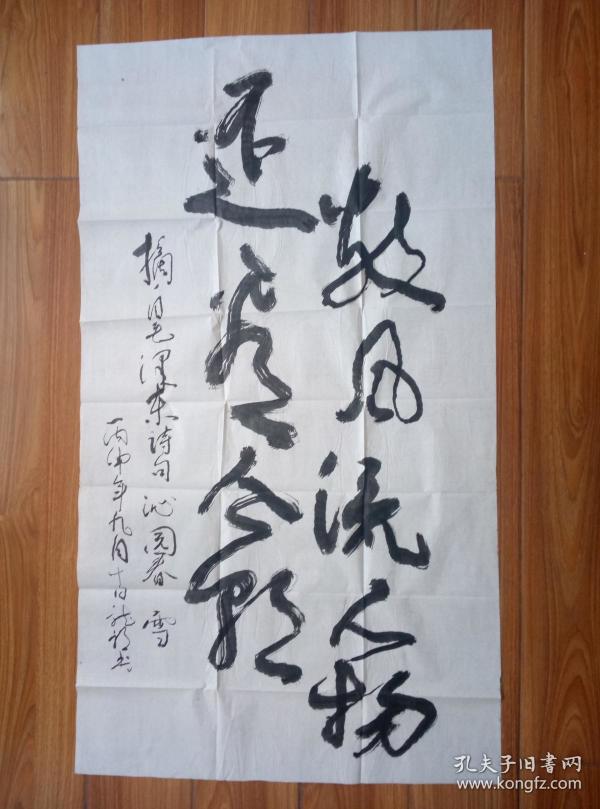 数风流人物
还看今朝
摘自毛泽东诗句沁园春雪
丙申年九月十日
书
孔夫子旧書网
www.kongfz.com